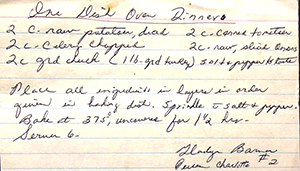 One Dish Oven Dinner
2 c. raw potatoes, diced 2 c. canned tomatoes
2 c. Celery chopped 2 c. raw, sliced onions
2 c grd chuck (1 lb. grd turkey) salt & pepper to taste
Place all ingredients in layers in order
given in baking dish. Sprinkle c salt & pepper.
Bake at 375°, uncovered for 1 1/2 hrs.
Serves 6.
Charlotte #2